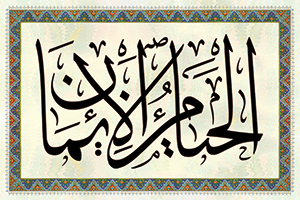 الحياء من الإيمان